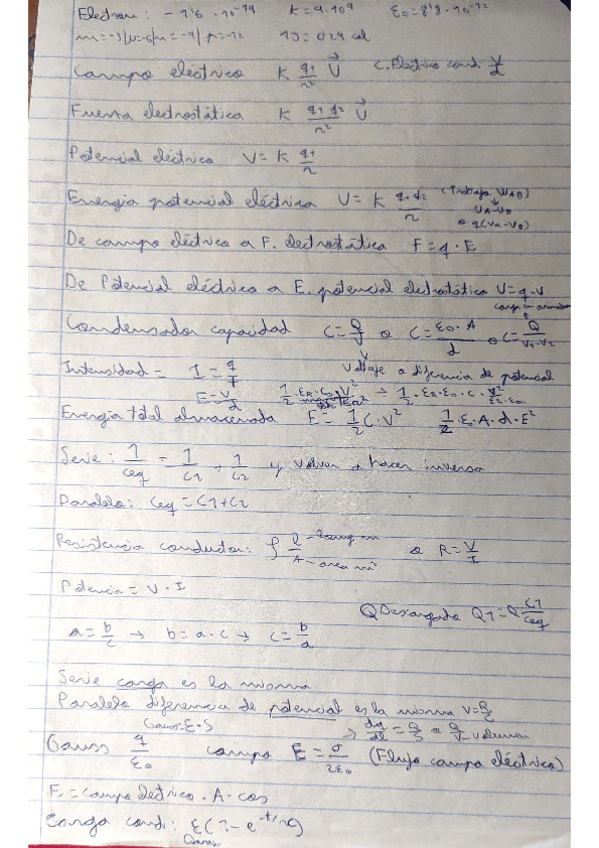 Electron: -1'6 · 10^-19   K = 9·10^9   ε0 = 8'8 · 10^-12
m=-3|μ=-6|n=-9|p=-12   1J = 0'24 cal
Campo eléctrico   K q1/r²   U⃗   C. Electrico cond. V/d
Fuerza electrostática   K q1 q2/r²   U⃗
Potencial eléctrico   V = K q1/r
Energia potencial eléctrica   U = K q1·q2/r   (Trabajo WAB)
UA-UB
o q(VA-VB)
De campo eléctrico a F. electrostática   F = q · E
De Potencial eléctrico a E. potencial electrostática   U = q · V
Condensador capacidad   C = Q/V   o   C = ε0 · A/d   o C = Q/V1-V2
Voltaje o diferencia de potencial
Intensidad =   I = q/T
E = V/d
Energia total almacenada   E = 1/2 C·V²   1/2 · ε · A · d · E²
Serie: 1/Ceq = 1/C1 + 1/C2   y volver a hacer inversa
Paralelo: Ceq = C1+C2
Resistencia conductor: ρ l/A - area m²   o   R = V/I
Potencia = V · I
Q Descargada   Q1 = Q C1/Ceq
a = b/c → b = a · c → c = b/a
Serie carga es la misma
Paralelo diferencia de potencial es la misma V = Q/C
Gauss = E · S
Gauss   q/ε0   campo   E = σ/2ε0   (Flujo campo eléctrico)
F = campo electrico · A · cos
Carga cond: ε(1 - e^-t/RC)